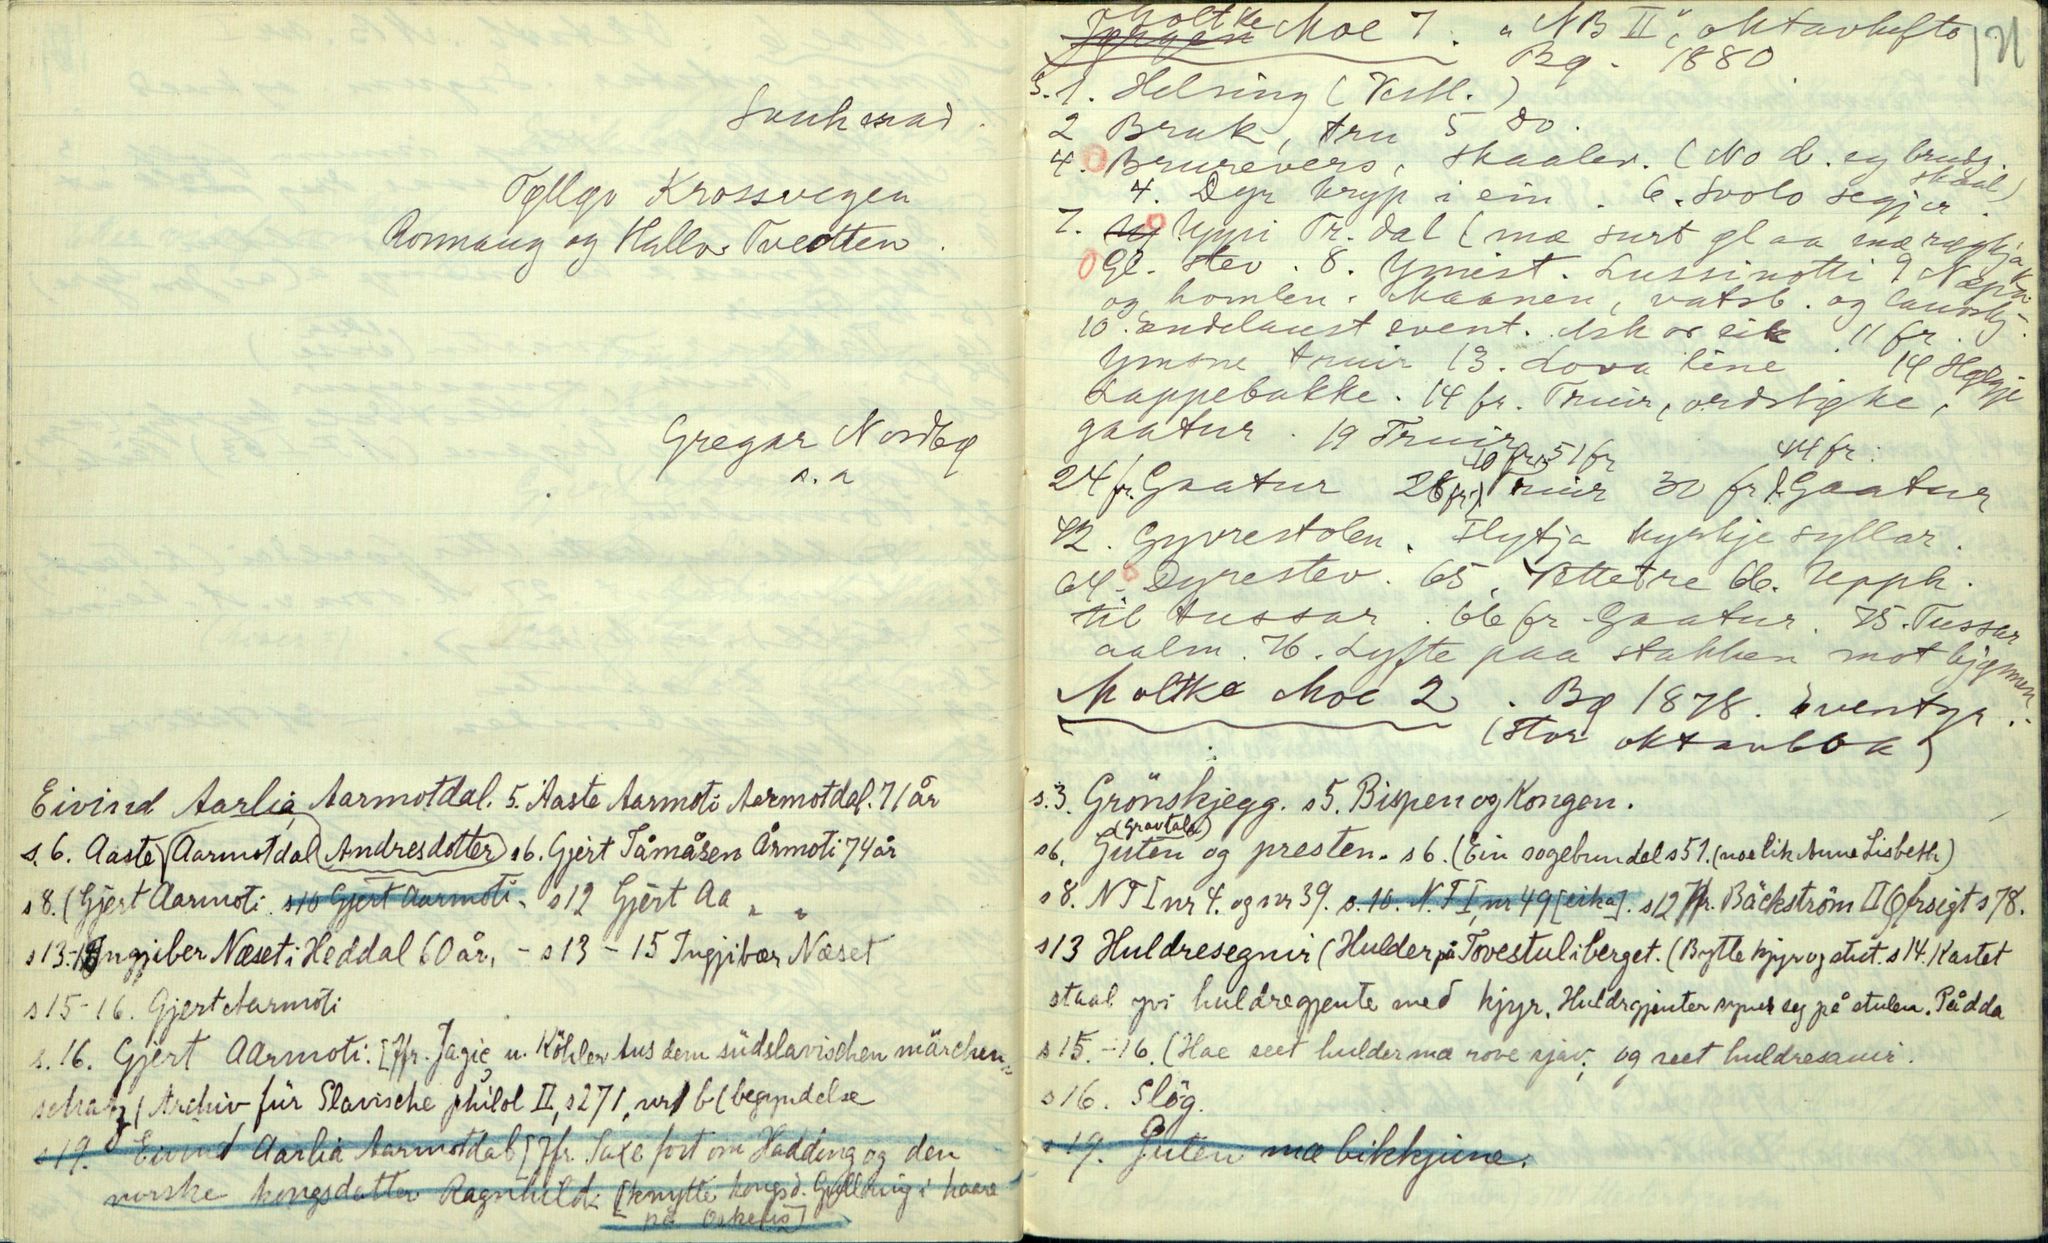 Sauherad.
Tølløv Krossvegen
Ronnaug og Hallvor Tvedtten.
Gregar Nordbø
s. a
Eivind Aarlia, Aarmotdal. 5. Aaste Aarmoti Aarmotdal. 71 år
s. 6. Aaste (Aarmotdal (Andresdotter) s6. Gjert Tåmåsen Åarmoti 74 år
s8. (Gjert Aarmoti. s10 Gjert Aarmoti. s12 Gjert Aa „ „
s13- Ingjiber Næset i Heddal 60 år, - s13 - 15 Ingjibær Næset
s15-16. Gjert Aarmoti
s. 16. Gjert Aarmoti. [Jfr. Jagic, u. Köhler Aus dem südslavischen märchen-
schatz (Archiv für Slavische philol II, s271, nr 1 b (begyndelse
s19. Eivind Aarlia Aarmotdal [Jfr. Saxe fort om Hadding og den
norske kongsdatter Ragnhild. [knytte kongsd. Gullring i haare
på Oskefis]
Moltke
Jørgen Moe 7. „NB II", oktavhefte
Bø. 1880
121
s. 1. Helsing (Vestl.)
2 Bruk, tru 5 do.
4. Brurevers, skaaler. (No d. eg bruds.
skaal)
4. Dyr kryp i ein. 6. Svolo segjer.
7. Uppi Tr. dal (mæ surt øl aa mæ
Gl. stev. 8. Ymist. Lussinotti 9
og homlen. Maanen, vatsb. og
10. Endelaust event. Ask or eik 11 fr.
Ymsne truir 13. Lova line. 14 Hølje
Lappebakke. 14 fr. Truir, ordstøke,
gaatur. 19 Truir
40 fr. 51 fr 44 fr.
24 fr. Gaatur 26 fr. Truir 30 fr. Gaatur
42. Gyvrestolen. Flytja kyrkje syllar.
64. Dyrestev. 65. Vettetre 66. Upph.
til tussar. 66 fr. Gaatur. 75. Tussar
aalm. 76. Lyfte paa stakken mot bjønnen.
Moltke Moe 2. Bø 1878. Eventyr.
(Stor oktavbok)
s. 3. Grönskjegg. s5. Bispen og Kongen.
(Gravtala)
s6. Guten og presten. s6. (Ein sogebundel s51. (noe lik Anne Lisbeth)
s8. NF I nr 4. og nr 39. s. 10. N. F I, nr 49 [eika]. s12 Jfr. Bäckström II Öfrsigt s78.
s13 Huldresegnir (Hulder på Tovestul i berget. (Bytte kjyr og stut. s14. Kastet
staal yvi huldregjente med kjyr. Huldrgjenter synes seg på stulen. Pådda
s15.-16. (Hae seet hulder mæ rove sjøv; og seet huldresauir.
s16. Slög.
s19. Guten mæ bikkjune.